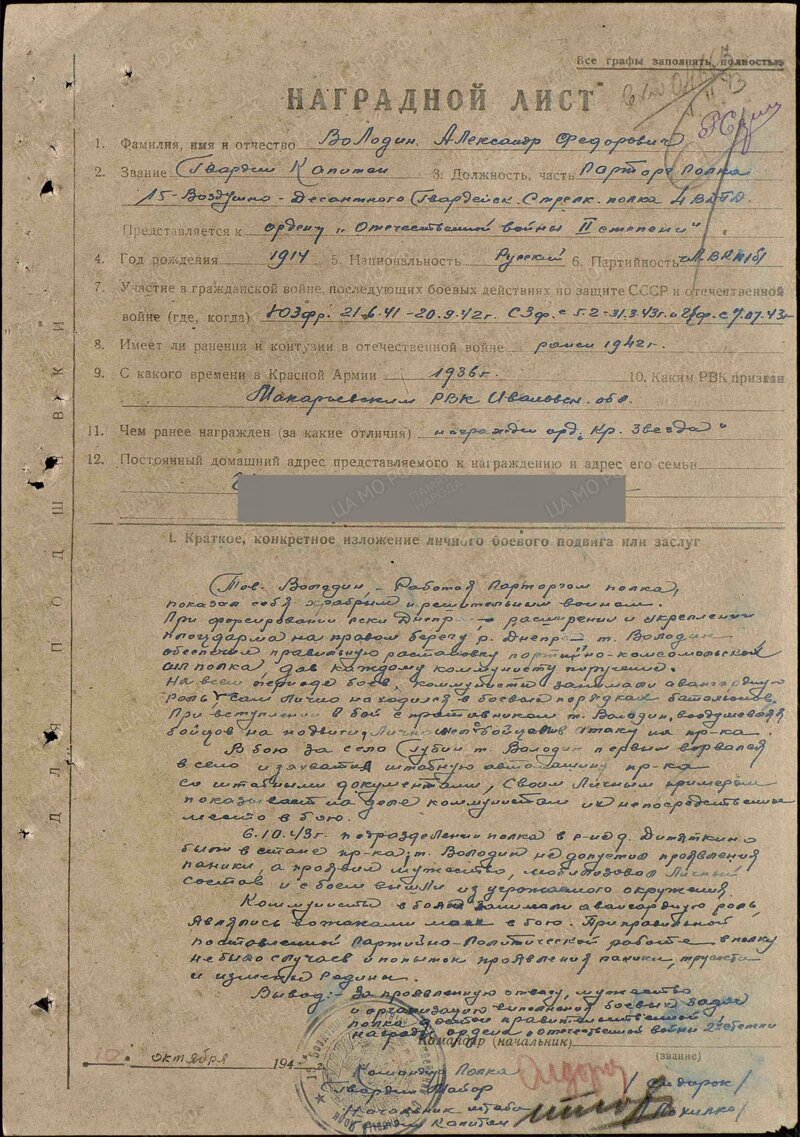 Все графы заполнять полностью
НАГРАДНОЙ ЛИСТ
1. Фамилия, имя и отчество Володин Александр Федорович
2. Звание Гвардии Капитан 3. Должность, часть Парторг полка
15-Воздушно-Десантного Гвардейск. Стрелк. полка 4 ВДГД.
Представляется к ордену „Отечественной войны II степени"
4. Год рождения 1914 5. Национальность Русский 6. Партийность чл. ВКП(б)
7. Участие в гражданской войне, последующих боевых действиях по защите СССР и отечественной
войне (где, когда) ЮЗфр. 21.6.41-20.9.42г. СЗф. с 5.2-31.3.43г. и с 7.07.43г
8. Имеет ли ранения и контузии в отечественной войне ранен 1942г.
9. С какого времени в Красной Армии 1936г. 10. Каким РВК призван
Макарьевским РВК Ивановск. обл.
11. Чем ранее награжден (за какие отличия) награжден орд. „Кр. Звезда"
12. Постоянный домашний адрес представляемого к награждению и адрес его семьи
I. Краткое, конкретное изложение личного боевого подвига или заслуг
Тов. Володин, – Работая Парторгом полка,
показал себя храбрым и решительным воином.
При форсировании реки Днепр – расширении и укреплении
плацдарма на правом берегу р. Днепр – т. Володин
обеспечил правильную растановку партийно-комсомольских
сил полка дав каждому коммунисту поручение.
На всем периоде боев, коммунисты занимали авангардную
роль, сам лично находился в боевых порядках батальонов.
При вступлении в бой с противником т. Володин, воодушевляя
бойцов на подвиги, Лично атаку на пр-ка.
В бою за село Губин т. Володин первым ворвался
в село и захватил штабную автомашину пр-ка
со штабными документами, Своим Личным примером
показывает на деле коммунистам их непосредственное
место в бою.
6.10.43г. подразделении полка в р-не д. Дитяткино
были в стане пр-ка, т. Володин не допустил проявления
паники, а проявил мужество, мобилизовал Личный
состав и с боем вышли из угрожаемого окружения.
Коммунисты в боях занимали авангардную роль,
являлись вожаками масс в бою. При правильной
поставленной Партийно-Политической работе в полку
не было случаев и попыток проявления паники, трусости
и измены Родины.
Вывод: – За проявленную отвагу, мужество
и организацию выполнения боевых задач
полка достоин правительственной
награды ордена „Отечественной войны 2й степени
Командир (начальник)
(звание)
10. октября 194 3
Командир Полка
Гвардии Майор /Сидорок/
Начальник штаба
Капитан
ДЛЯ ПОДШИВКИ
ЦА МО РФ
ПАМЯТЬ НАРОДА
ЦА МО РФ